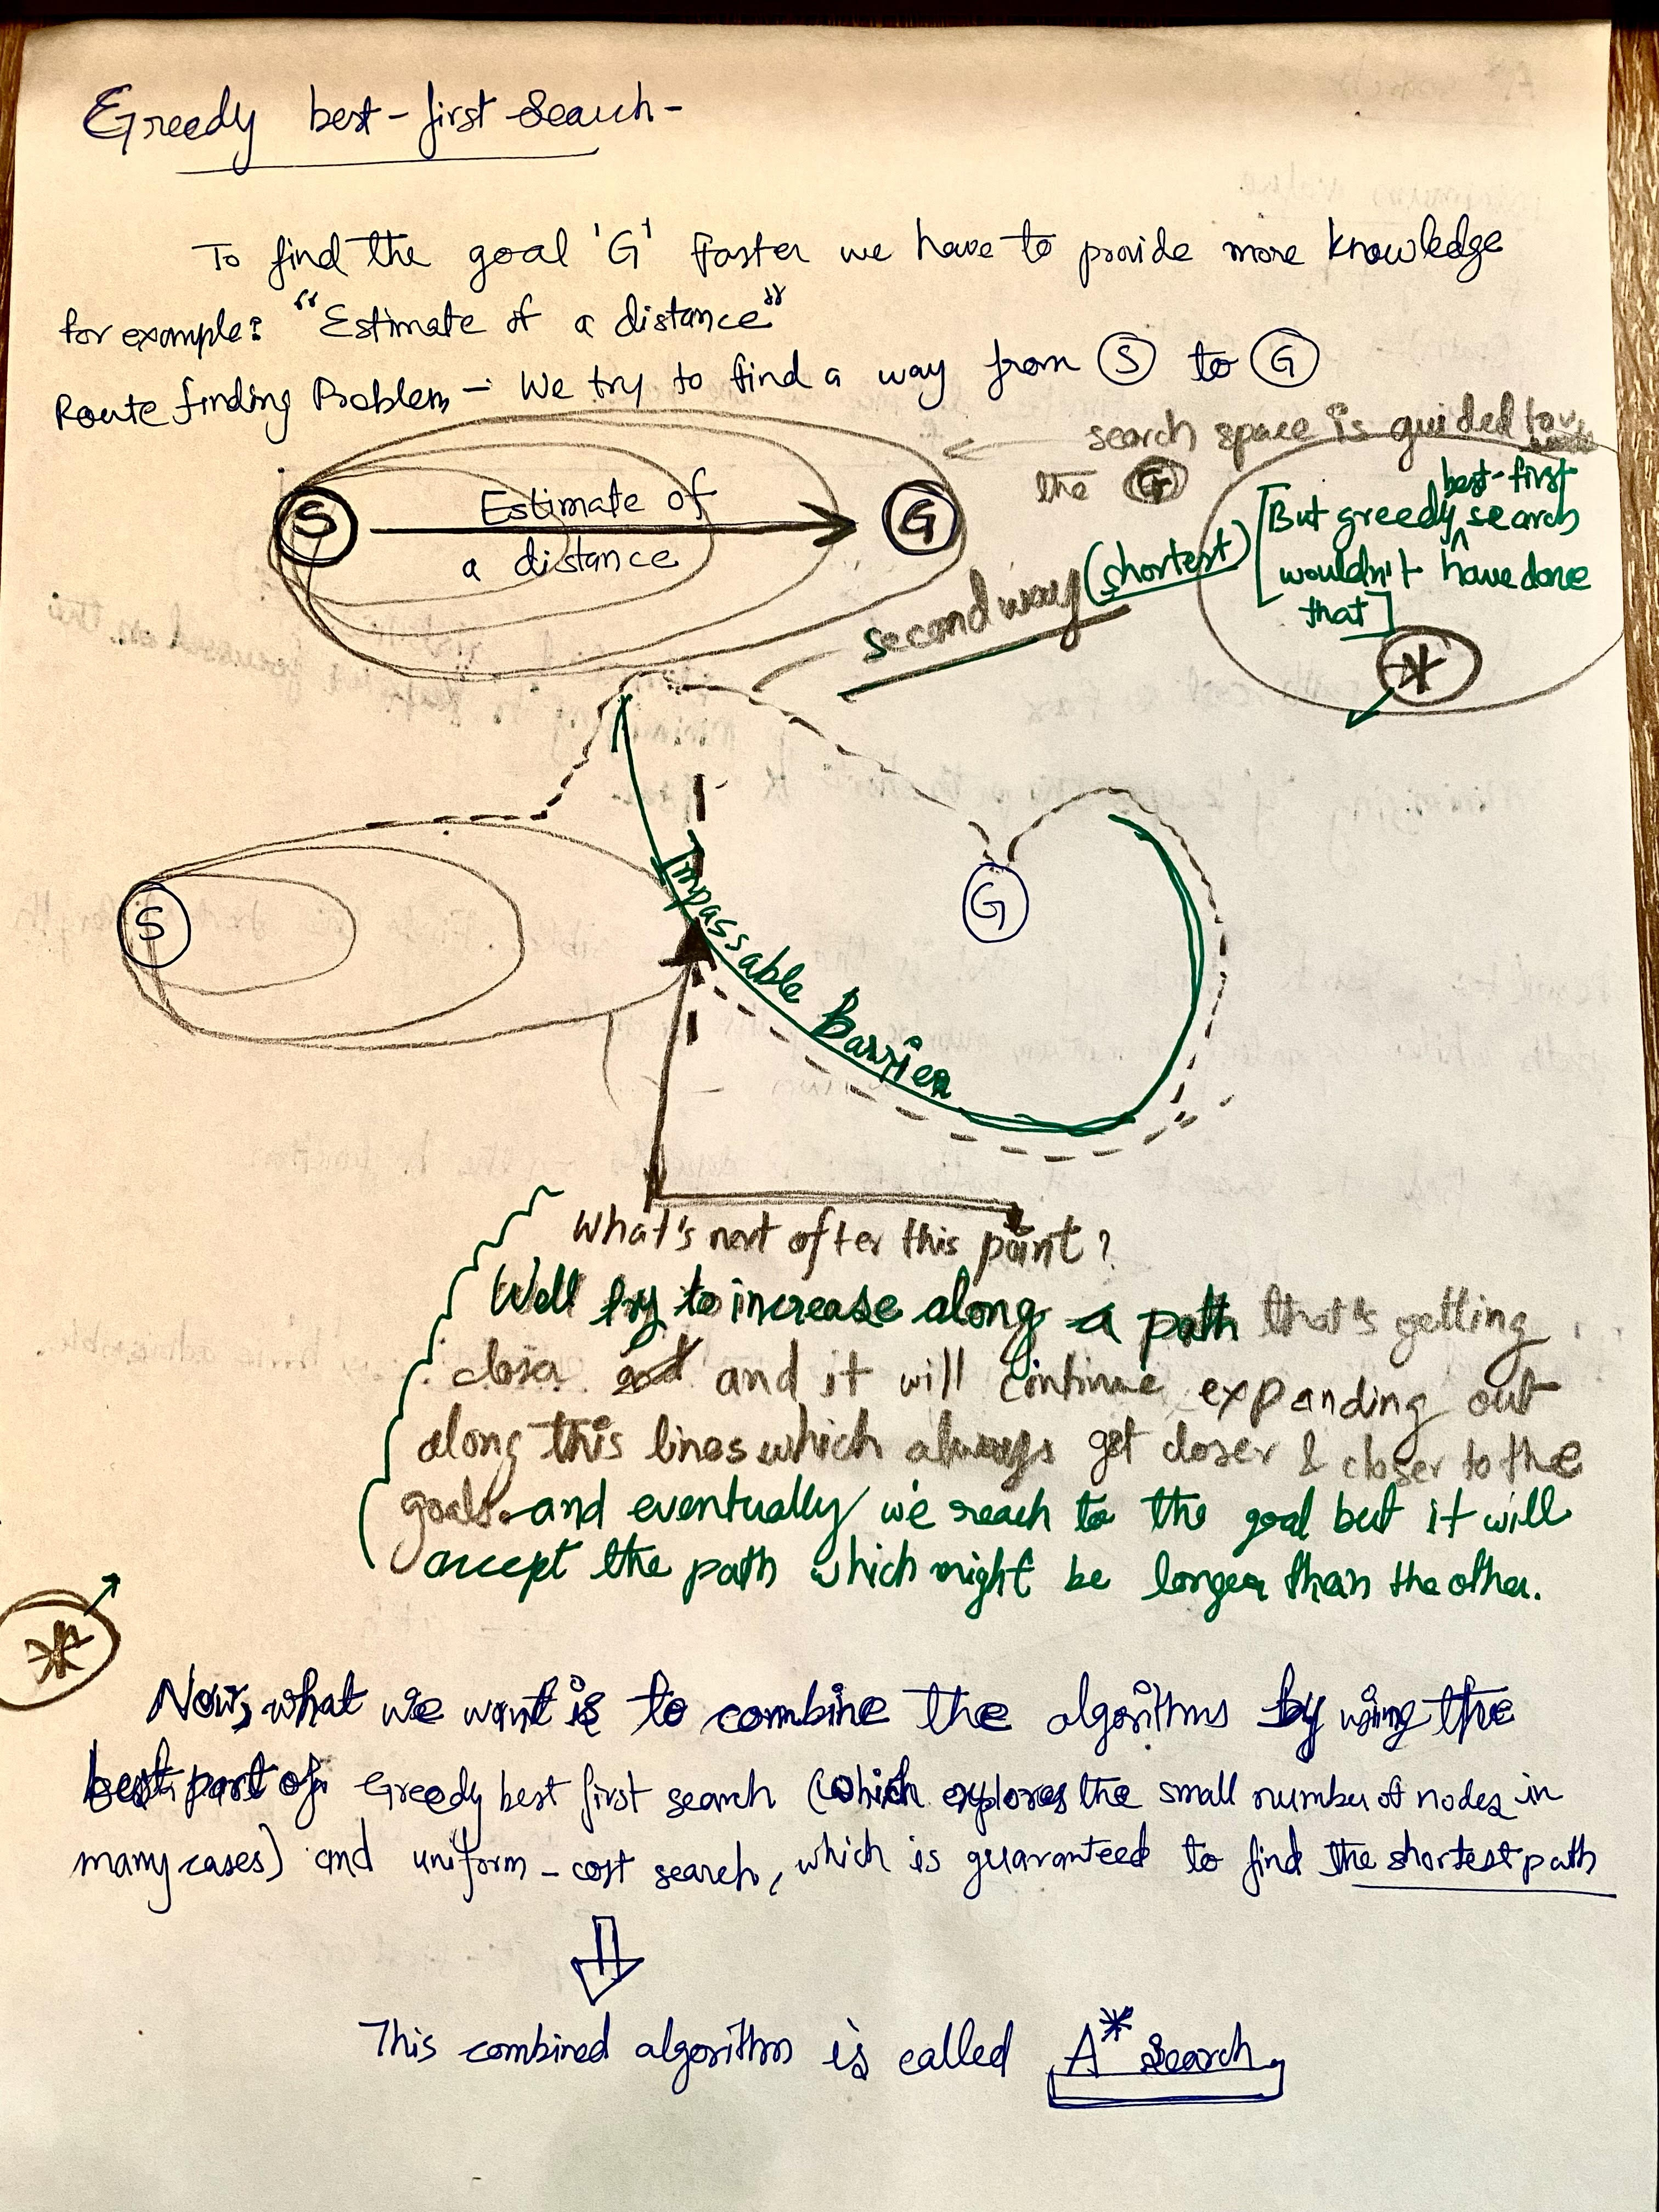 Greedy best-first-search-
To find the goal 'G' faster we have to provide more knowledge
for example: "Estimate of a distance"
Route finding Problem - We try to find a way from S to G
search space is guided
the G
S
Estimate of
a distance
G
second way (shortest)
[But greedy best-first search
wouldn't have done
that]
*
S
G
Impassable Barrier
What's next after this point?
We'll try to increase along a path that's getting
closer and it will continue expanding out
along this lines which always get closer & closer to the
goals. and eventually we reach to the goal but it will
accept the path which might be longer than the other.
*
Now, what we want is to combine the algorithms by using the
best part of Greedy best first search (which explores the small number of nodes in
many cases) and uniform-cost search, which is guaranteed to find the shortest path
This combined algorithm is called A* Search